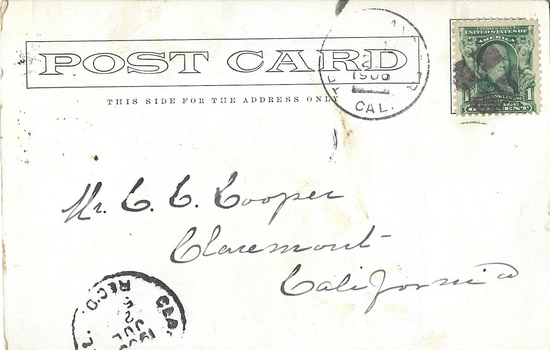 POST CARD
THIS SIDE FOR THE ADDRESS ONLY
1906
CAL.
UNITED STATES OF
AMERICA
1
Mr. C. C. Cooper
Claremont
California
REC'D.
CLA
JUL